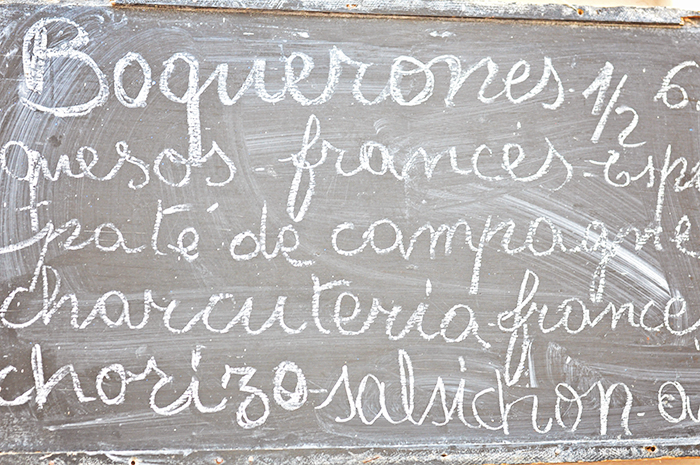 Boquerones. 1/2 6
quesos - francés - esp
paté de campagne
charcuteria - france
chorizo - salsichon - a